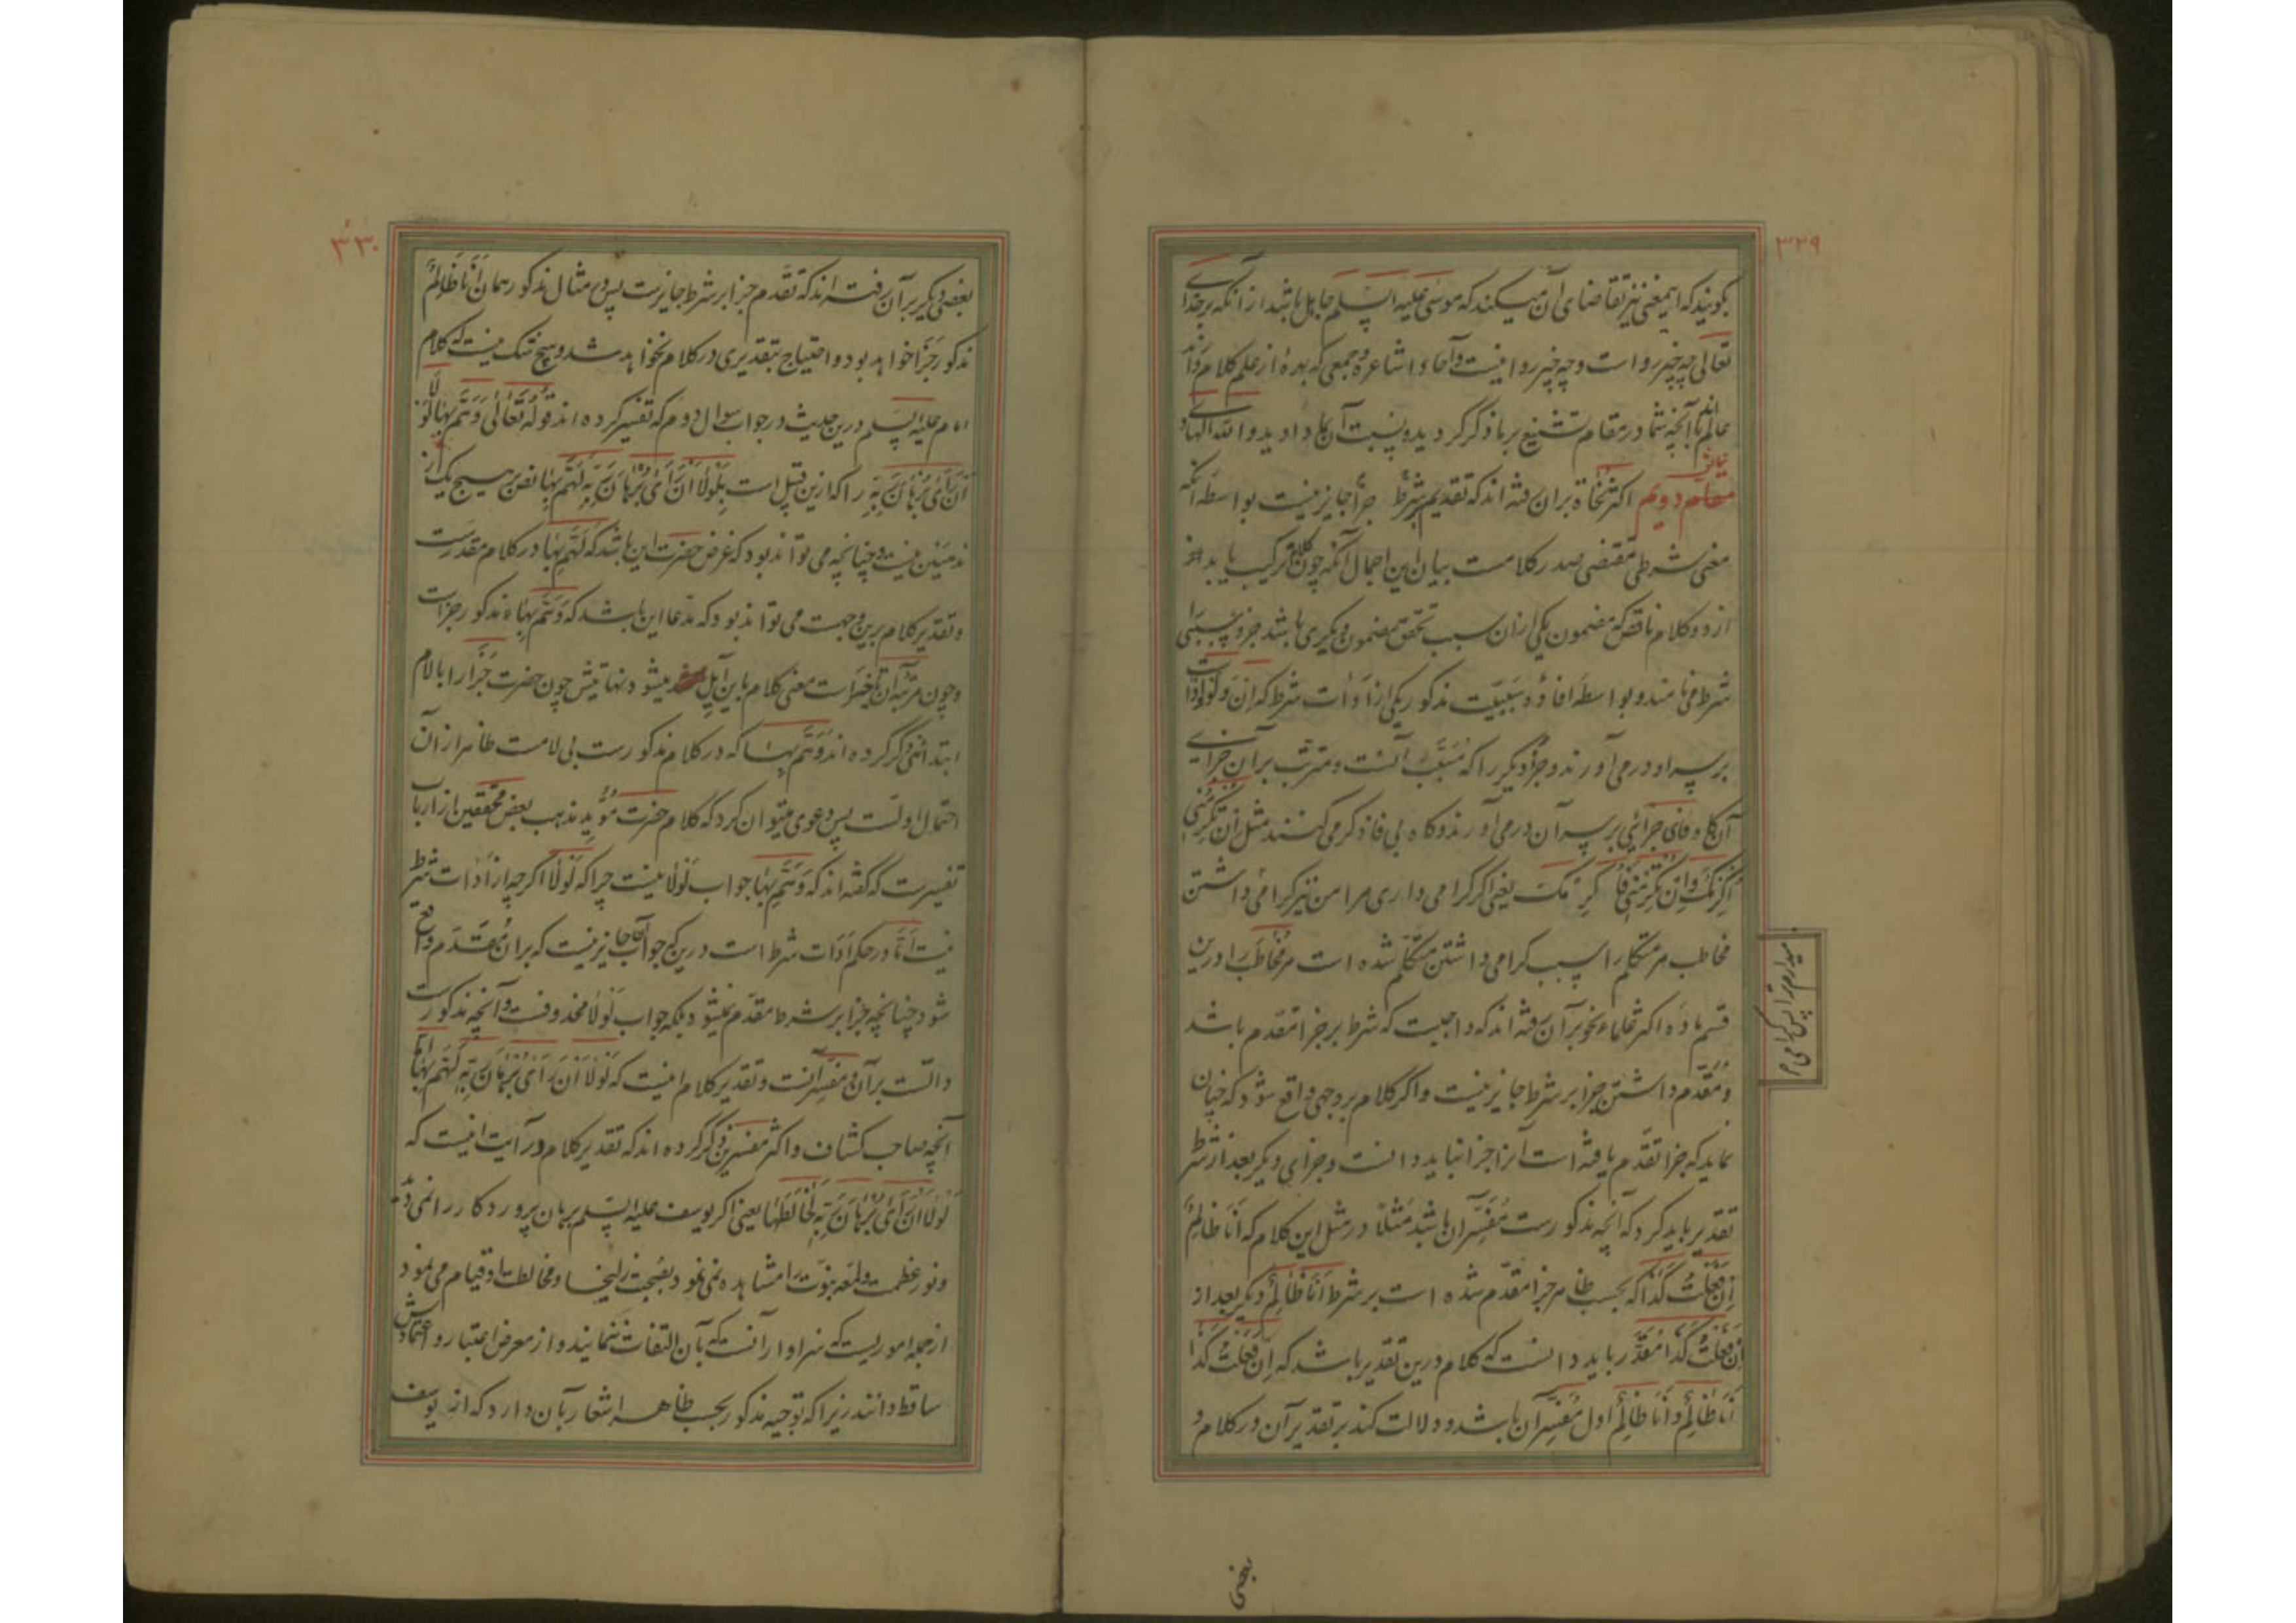 ۳۲۹
بگویند که اینمعنی نیز تقاضای آن میکند که موسی علیه السلم جاهل باشد از آنکه بر خدای
تعالی چه چیز رواست و چه چیز روا نیست و آحاد اشاعره و جمعی که بهره از علم کلام دارند
عالم اند بآنچه شما در مقام تشنیع بر ما ذکر کردید و نسبت آن بما دادید و الله الهادی
مقام دویم اکثر نحاة بران رفته اند که تقدیم شرط جزا جایز نیست بواسطه آنکه
معنی شرطی مقتضی صدر کلامست بیان این اجمال آنکه چون کلام ترکیب یابد
از دو کلام ناقص که مضمون یکی ازان سبب تحقق مضمون دیگری باشد جزو سببی را
شرط می نامند و بواسطه افاده سببیت مذکور یکی از ادات شرط که ان و لو و اذا ست
بر سر او در می آورند و جزو دیگر را که مسبب آنست و مترتب بر آن جزای
آن و فای جزائی بر سر آن در می آورند و گاه بی فا ذکر می کنند مثل ان تکرمنی
اکرمک و ان تکرمنی فاکرمک یعنی اگر گرامی داری مرا من نیز گرامی داشتن
مخاطب مر متکلم را سبب گرامی داشتن متکلم شده است مر مخاطب را درین
قسم ماده اکثر علماء نحو بر آن رفته اند که واجبست که شرط بر جزا مقدم باشد
و مقدم داشتن جزا بر شرط جایز نیست و اگر کلام بر وجهی واقع شود که چنان
نماید که جزا تقدم یافته است آنرا جزا نباید دانست و جزای دیگر بعد از شرط
تقدیر باید کرد که آنچه مذکور ست مفسر آن باشد مثلا در مثل این کلام که انا ظالم
ان فعلت کذا که بحسب ظاهر جزا مقدم شده است بر شرط انا ظالم دیگر بعد از
ان فعلت کذا مقدر باید دانست که کلام درین تقدیر باشد که ان فعلت کذا
انا ظالم و انا ظالم اول مفسر آن باشد و دلالت کند بر تقدیر آن در کلام و
میدارم ترا پس گرامی
بعضی
۳۳۰
بعضی دیگر بر آن رفته اند که تقدم جزا بر شرط جایزست پس در مثال مذکور همان انا ظالم
مذکور جزا خواهد بود و احتیاج بتقدیری در کلام نخواهد شد و هیچ شک نیست که کلام
امام علیه السلم درین حدیث در جواب سوال دوم که تفسیر کرده اند قوله تعالی و هم بها لولا
ان رای برهان ربه را که ازین قبیل است بلولا ان رای برهان ربه لهم بها نص در هیچ یک از
مذهبین نیست و چنانچه می تواند بود که غرض حضرت این باشد که لهم بها در کلام مقدرست
و تقدیر کلام برین وجهست می تواند بود که مدعا این باشد که و هم بها مذکور جزاست
و چون مرتبه آن تاخیر است معنی کلام باین آیل میشود نهایتش چون حضرت جزا را با لام
ابتدائی ذکر کرده اند و هم بها که در کلام مذکور ست بی لامست ظاهر از آن
احتمال اولست پس دعوی میتوان کرد که کلام حضرت مؤید مذهب بعض محققین از ارباب
تفسیرست که گفته اند که و هم بها جواب لولا نیست چرا که لولا اگر چه از ادات شرط
نیست اما در حکم ادات شرط است درین که جواب آنها جایز نیست که بران مقدم واقع
شود چنانچه جزا بر شرط مقدم نمیشود بلکه جواب لولا محذوفست و آنچه مذکورست
دالست بر آن و مفسر آنست و تقدیر کلام اینست که لولا ان رای برهان ربه لهم بها اما
آنچه صاحب کشاف و اکثر مفسرین ذکر کرده اند که تقدیر کلام در آیت اینست که
لولا ان رای برهان ربه لخالطها یعنی اگر یوسف علیه السلم برهان پروردگار را نمی دید
و نور عظمت و لمعه نبوت را مشاهده نمی نمود بصحبت زلیخا و مخالطت او قیام می نمود
از جمله اموریست که سزاوار آنست که بآن التفات ننمایند و از معرض اعتبار و اعتمادش
ساقط دانند زیرا که توجیه مذکور بحسب ظاهر اشعار بآن دارد که از یوسف